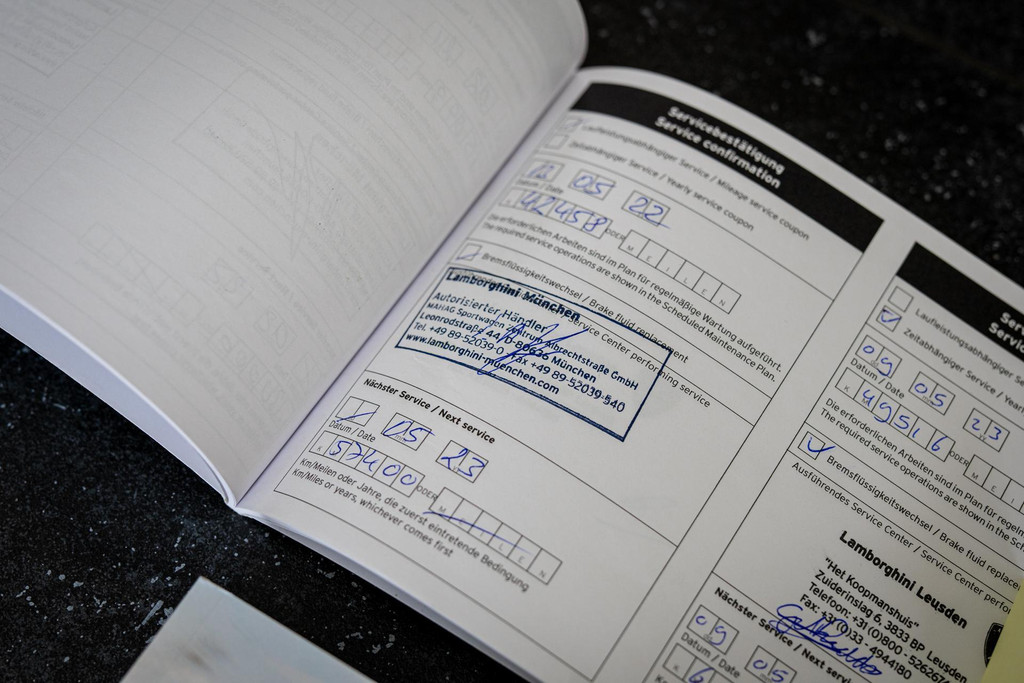 Servicebestätigung
Service confirmation
Laufleistungsabhängiger Service / Mileage service coupon
Zeitabhängiger Service / Yearly service coupon
12 05 22
Datum / Date
K 42458 ODER MEILEN
Die erforderlichen Arbeiten sind im Plan für regelmäßige Wartung aufgeführt.
The required service operations are shown in the Scheduled Maintenance Plan.
Bremsflüssigkeitswechsel / Brake fluid replacement
Service Center performing service
Lamborghini München
Autorisierter Händler
MAHAG Sportwagen Zentrum Albrechtstraße GmbH
Leonrodstraße 44 / D-80636 München
Tel. +49 89-52039-0 Fax +49 89-52039-540
www.lamborghini-muenchen.com
Nächster Service / Next service
05 23
Datum / Date
K 57400 ODER MEILEN
Km/Meilen oder Jahre, die zuerst eintretende Bedingung
Km/Miles or years, whichever comes first
Laufleistungsabhängiger
Zeitabhängiger Service / Yearly
09 05 23
Datum / Date
K 49516 ODER MEI
Die erforderlichen Arbeiten sind im Plan für
The required service operations are shown in the
Bremsflüssigkeitswechsel / Brake fluid
Ausführendes Service Center / Service Center
Lamborghini Leusden
"Het Koopmanshuis"
Zuiderinslag 6, 3833 BP Leusden
Telefoon: +31 (0)800 -
Fax: +31(0)33 - 4944180
Nächster Service / Next
09 05
Datum / Date
K 6